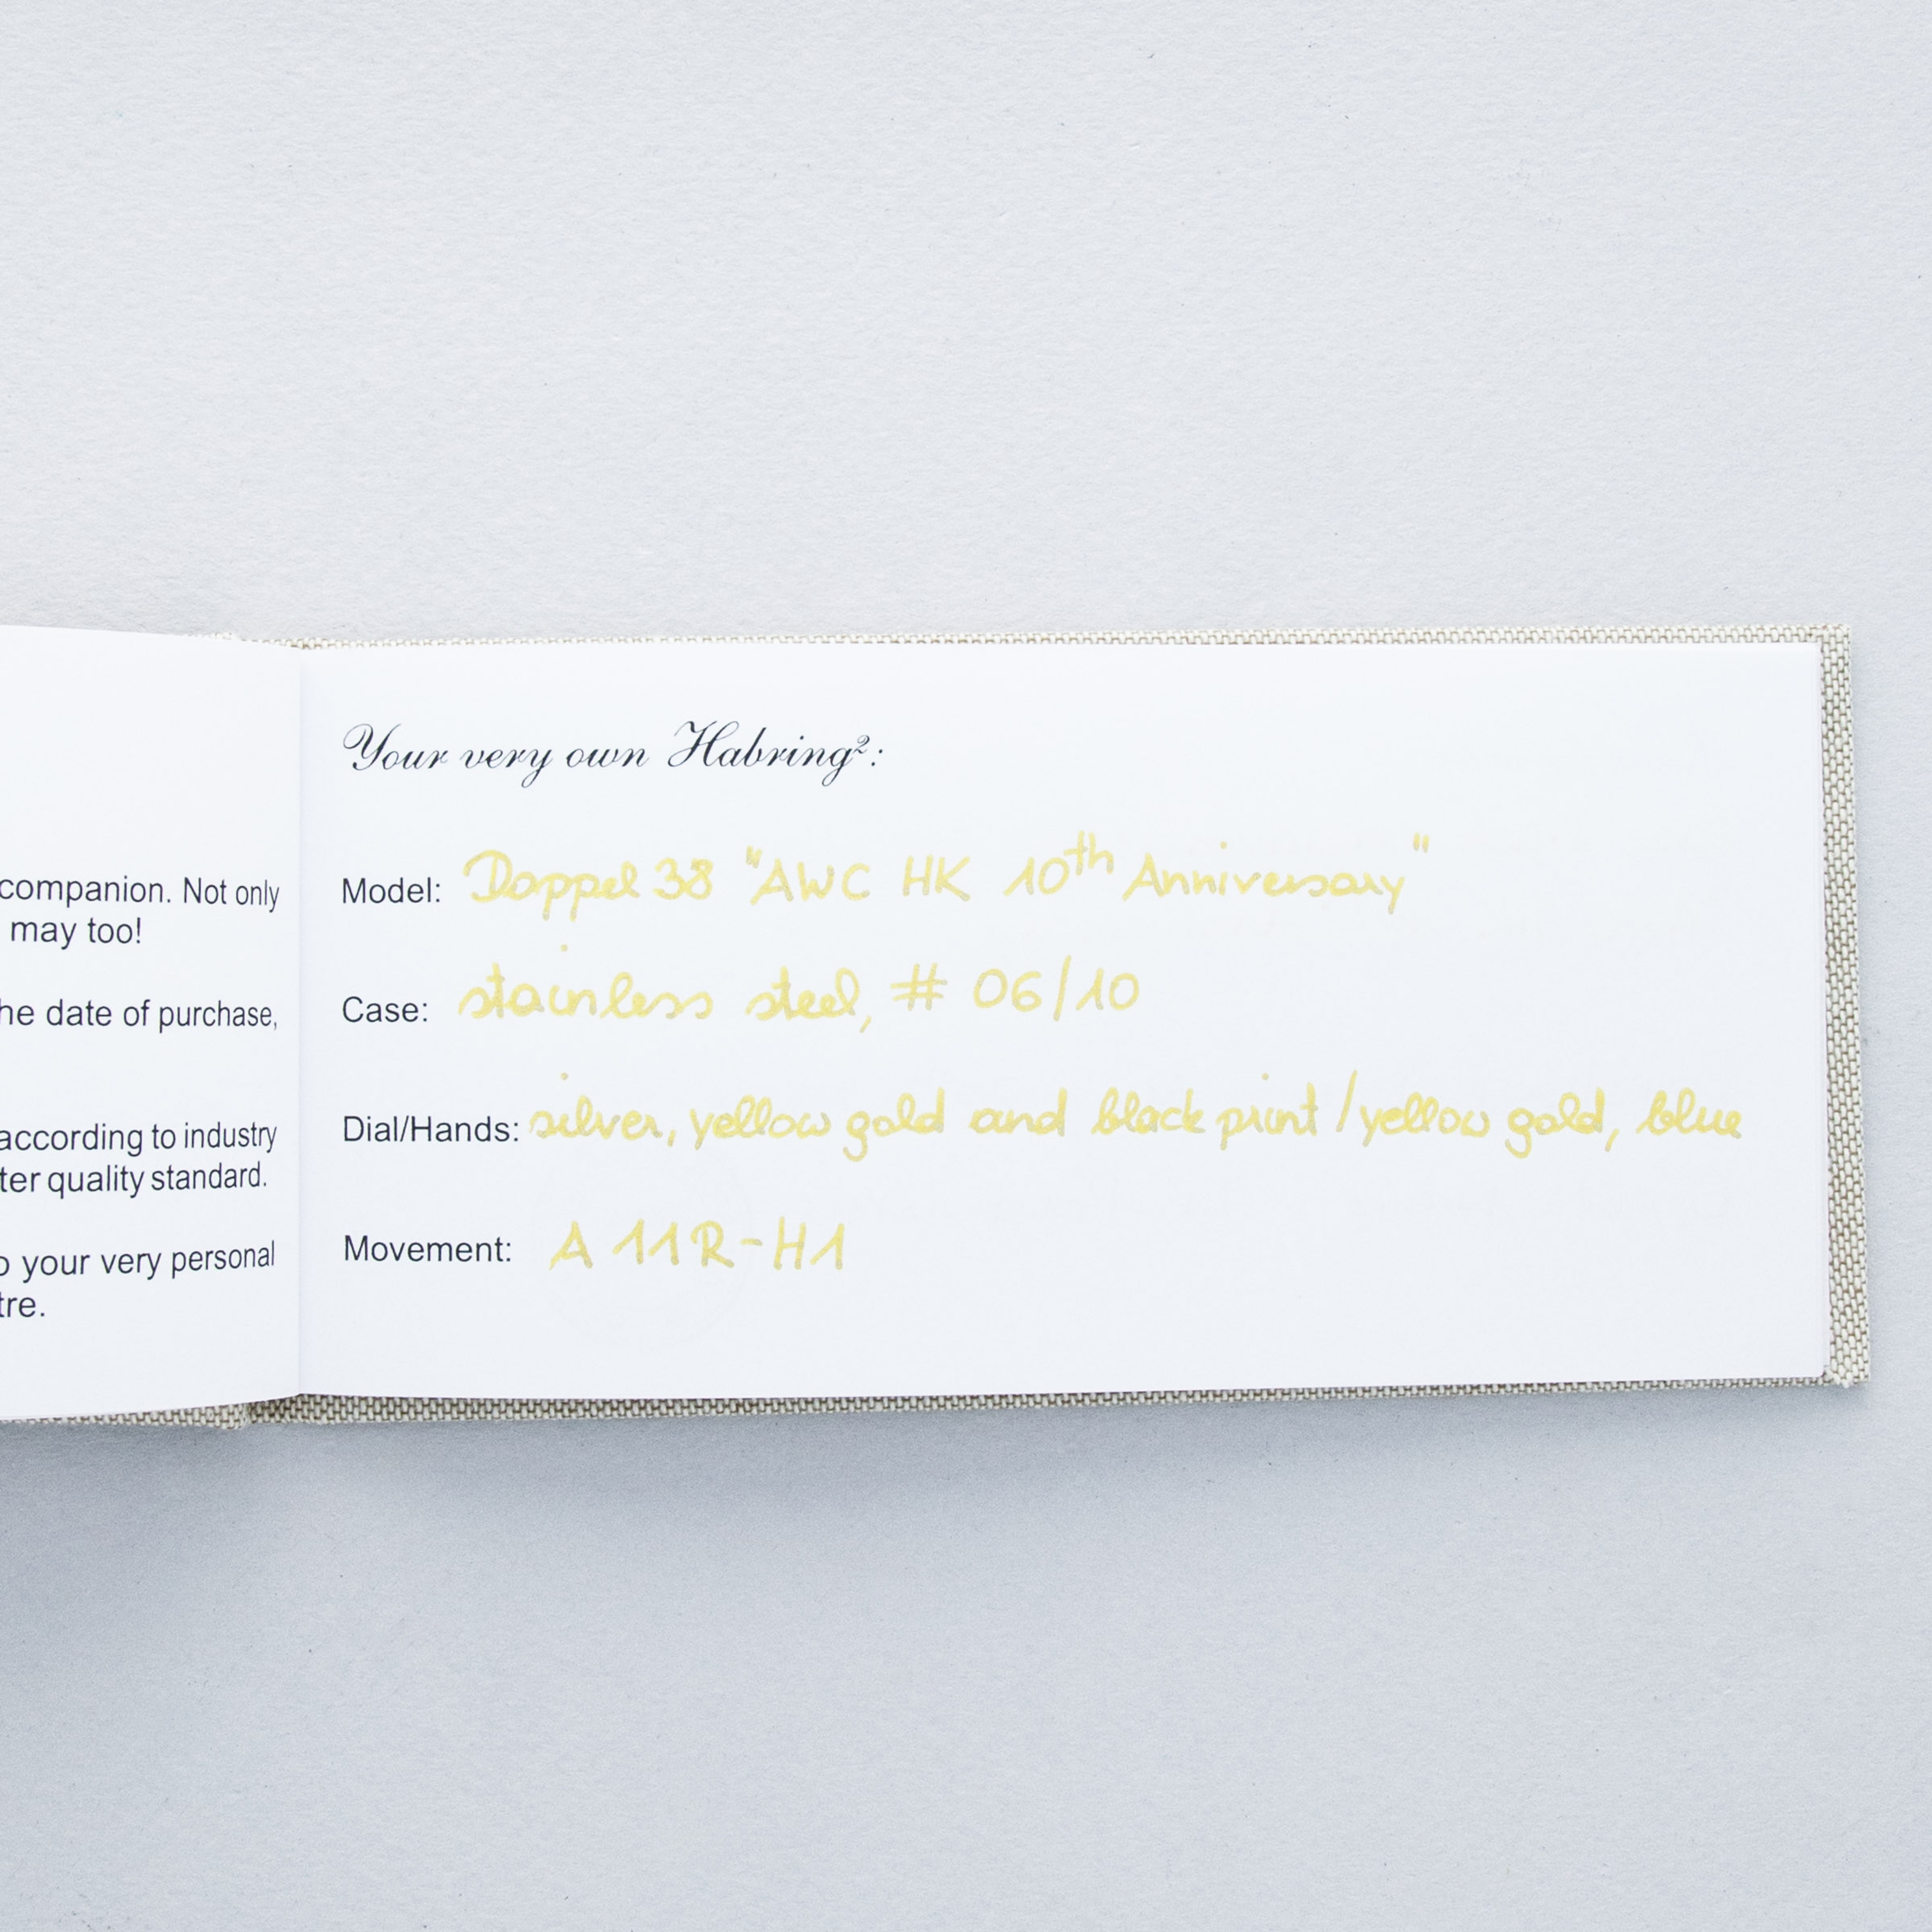 companion. Not only
may too!
he date of purchase,
according to industry
ter quality standard.
o your very personal
tre.
Your very own Habring²:
Model: Doppel 38 "AWC HK 10th Anniversary"
Case: stainless steel, # 06/10
Dial/Hands: silver, yellow gold and black print / yellow gold, blue
Movement: A 11R-H1